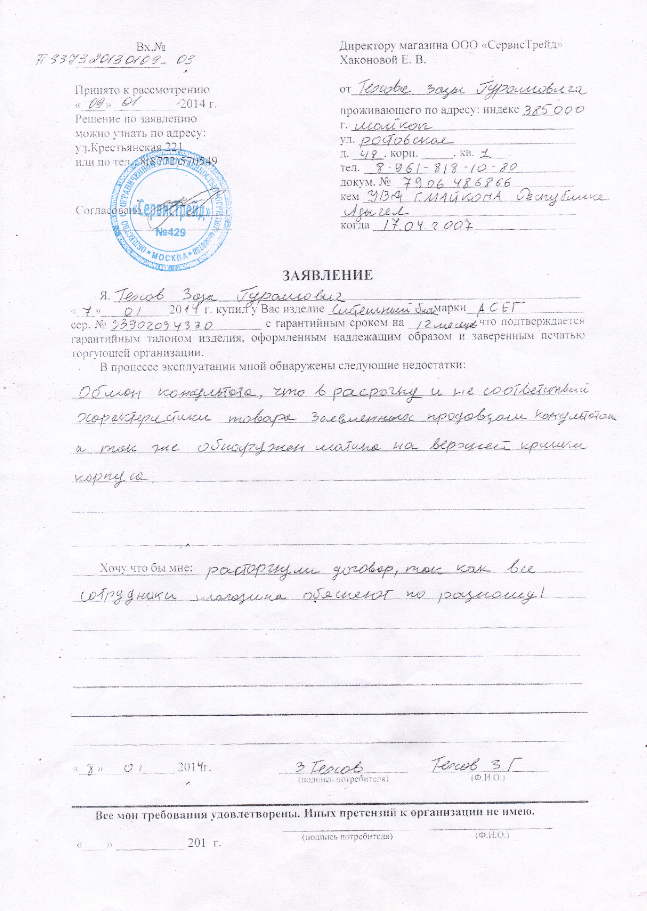 Вх.№
П 33732013 0109 - 03
Директору магазина ООО «СервисТрейд»
Хаконовой Е. В.
Принято к рассмотрению
« 09 » 01 2014 г.
Решение по заявлению
можно узнать по адресу:
ул.Крестьянская 221
или по тел. №8772 570549
Согласовано
«СервисТрейд»
№429
МОСКВА
от Зазы Гурамовича
проживающего по адресу: индекс 385000
г. майкоп
ул. ростовская
д. 48 . корп. . кв. 1
тел. 8-961-818-10-80
докум. № 7906 486866
кем УВД Г.МАЙКОПА Республике
Адыгея
когда 17.04.2007
ЗАЯВЛЕНИЕ
Я, Техов Заза Гурамович
« 7 » 01 2014 г. купил у Вас изделие марки
сер. № с гарантийным сроком на 12 месяцев что подтверждается
гарантийным талоном изделия, оформленным надлежащим образом и заверенным печатью
торгующей организации.
В процессе эксплуатации мной обнаружены следующие недостатки:
Обман , что в расрочку и не
характеристики товара продовцом
а так же обнаружен на верхней
корпуса
Хочу что бы мне: расторгнули договор, так как все
сотрудники магазина по разному!
« 8 » 01 2014г.
З Техов
Техов З Г
(подпись потребителя)
(Ф.И.О.)
Все мои требования удовлетворены. Иных претензий к организации не имею.
(подпись потребителя)
(Ф.И.О.)
« » 201 г.